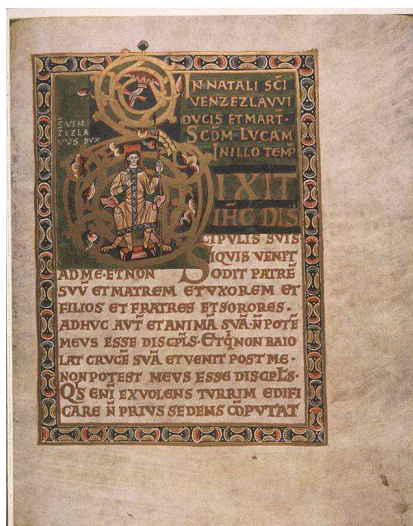 IN NATALI SC̄I
VENZEZLAVVI
DVCIS ET MART·
SC̄DM LVCAM
IN ILLO TEMP̄
S·VEN
ZEZLA
VVS DVX
DIXIT
IH̄C DIS
CIPVLIS SVIS
SIQVIS VENIT
AD ME·ET NON ODIT PATRĒ
SVV̄ ET MATREM ET VXOREM ET
FILIOS ET FRATRES ET SORORES·
ADHVC AVT̄ ET ANIMĀ SVĀ·N̄ POTĒ
MEVS ESSE DISCPLS·ET Q̄ NON BAIO
LAT CRVCĒ SVĀ ET VENIT POST ME·
NON POTEST MEVS ESSE DISCPLS·
QS ENĪ EX VOLENS TVRRIM EDIFI
CARE N̄ PRIVS SEDENS CŌPVTAT